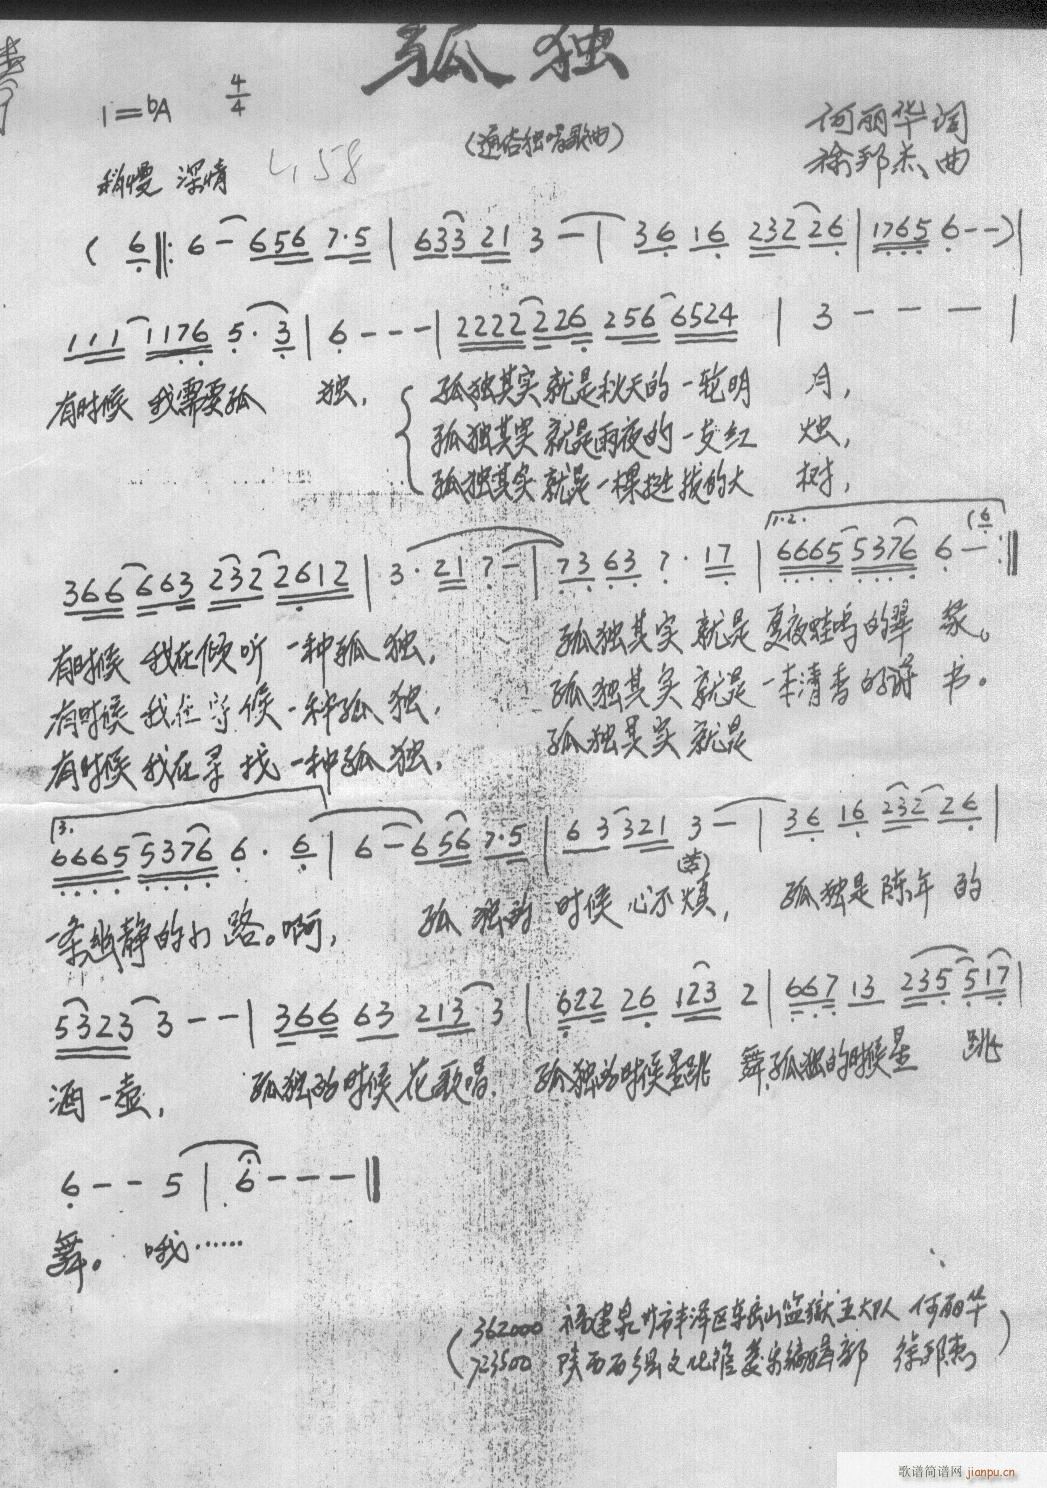 孤独
1=bA 4/4
(通俗独唱歌曲)
何丽华 词
徐邦杰 曲
稍慢 深情
( 6 ‖: 6 - 656 7·5 | 633 21 3 - | 36 16 232 26 | 1765 6 - - ) |
111 1176 5· 3 | 6 - - - | 2222 226 256 6524 | 3 - - - |
有时候 我需要孤 独, 孤独其实 就是秋天的 一轮明 月,
孤独其实 就是雨夜的 一支红 烛,
孤独其实 就是一棵挺拔的大 树,
1.2.
366 663 232 2612 | 3· 21 7 - | 73 63 7· 17 | 6665 5376 6 - (6 :‖
有时候 我在倾听 一种孤 独, 孤独其实 就是 夏夜蛙鸣的翠 绿。
有时候 我在守候 一种孤 独, 孤独其实 就是 一本清香的诗 书。
有时候 我在寻找 一种孤 独, 孤独其实 就是
3.
6665 5376 6· 6 | 6 - 656 7·5 | 63 321 3 - | 36 16 232 26 |
一条幽静的小 路。啊, 孤 独的 时候 心不烦, 孤独是 陈年 的
(苦)
5323 3 - - | 366 63 213 3 | 622 26 123 2 | 667 13 235 517 |
酒 一壶, 孤独的时候 花歌唱, 孤独的时候星跳 舞,孤独的时候星 跳
6 - - 5 | 6 - - - ‖
舞。 哦……
(362000 福建泉州市丰泽区 监狱五大队 何丽华
723500 陕西西 县文化馆 编辑部 徐邦杰)
歌谱简谱网 jianpu.cn